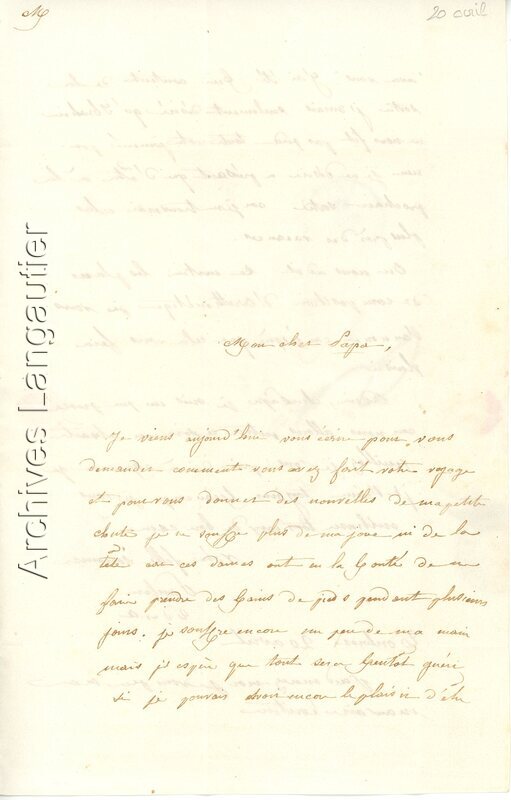 M
20 avril
Archives Langautier
Mon cher Papa,
Je viens aujourd'hui vous écrire pour vous
demander comment vous avez fait votre voyage
et pour vous donner des nouvelles de ma petite
chute je ne souffre plus de ma joue ni de la
tête car ces dames ont eu la bonté de me
faire prendre des bains de pieds pendant plusieurs
jours. je souffre encore un peu de ma main
mais j'espère que tout sera bientôt guéri
si je pouvais avoir encore le plaisir d'être